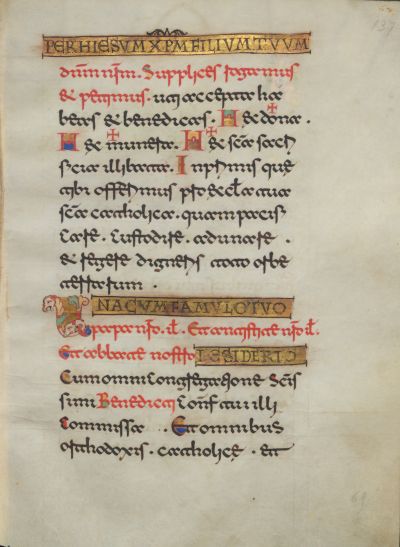 137
PER HIESUM XPM FILIUM TUUM
dnm nrm. Supplices rogamus
& petimus. uti accepta ha
beas & benedicas. Hec dona.
Hec munera. Hec sca sacri
ficia illibata. In primis que
tibi offerimus pro eccla tua
sca catholica. quam pacifi
care. Custodire. adunare.
& regere digneris toto orbe
terrarum.
UNA CUM FAMULO TUO
papa nro. ill. Et antistite nro ill.
Et abbate nostro DESIDERIO
Cum omni Congregatione Scis
simi Benedicti Conf tui illi
Commissa. Et omnibus
orthodoxis. catholice. Et